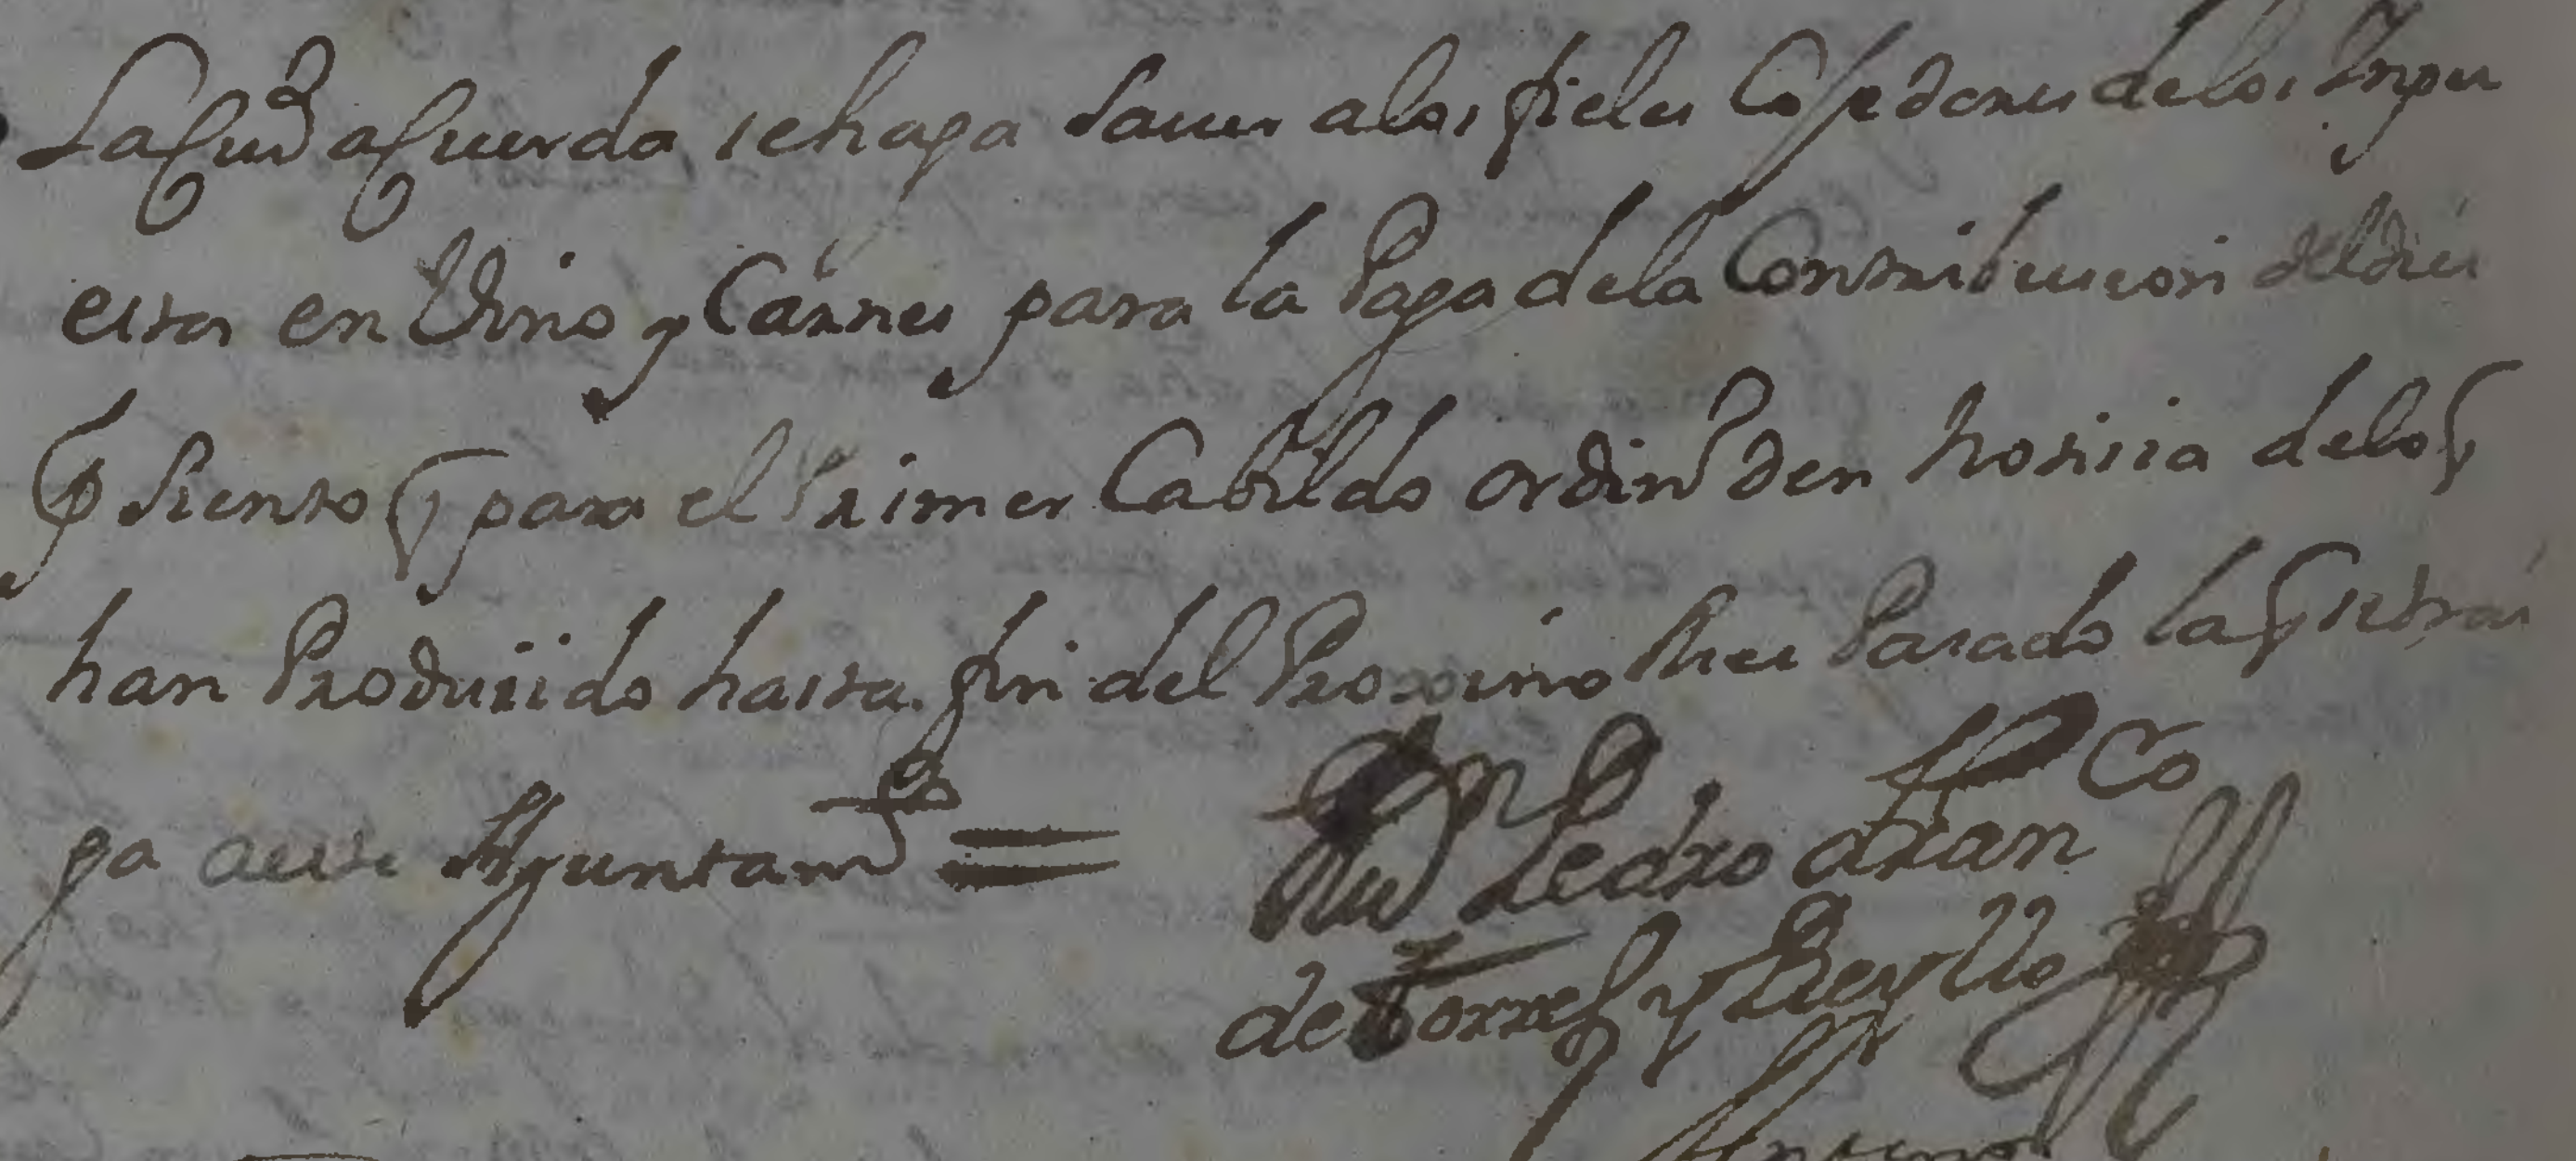 La Ciud acuerda se haga sauer a los fieles Cojedores de los Ympu
estos en Vino y Carnes para la Paga de la Contribucion del dies
p Siento q para el Primer Cabildo ordin den notisia de lo q
han Produsido hasta fin del Proximo Mes Pasado la q se trai
ga a este Ayuntam =
Pedro Fran Co
de Torres y